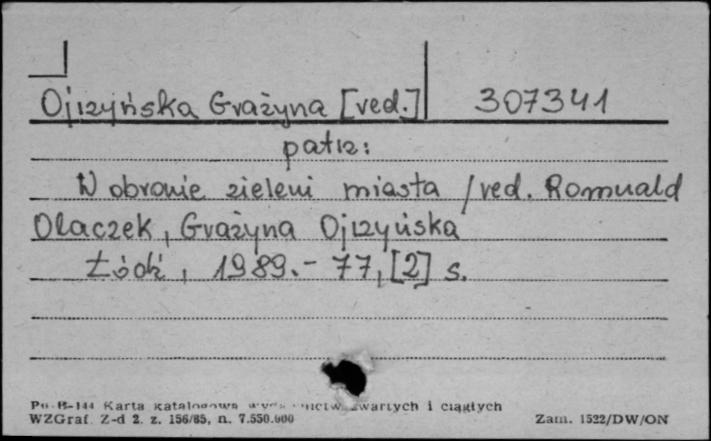 Ojrzyńska Grażyna [red.] 307341
patrz:
W obronie zieleni miasta / red. Romuald
Olaczek, Grażyna Ojrzyńska
Łódź, 1989.- 77, [2] s.
Pu-B-144 Karta katalogowa zwartych i ciągłych
WZGraf. Z-d 2. z. 156/85, n. 7.550.000 Zam. 1522/DW/ON